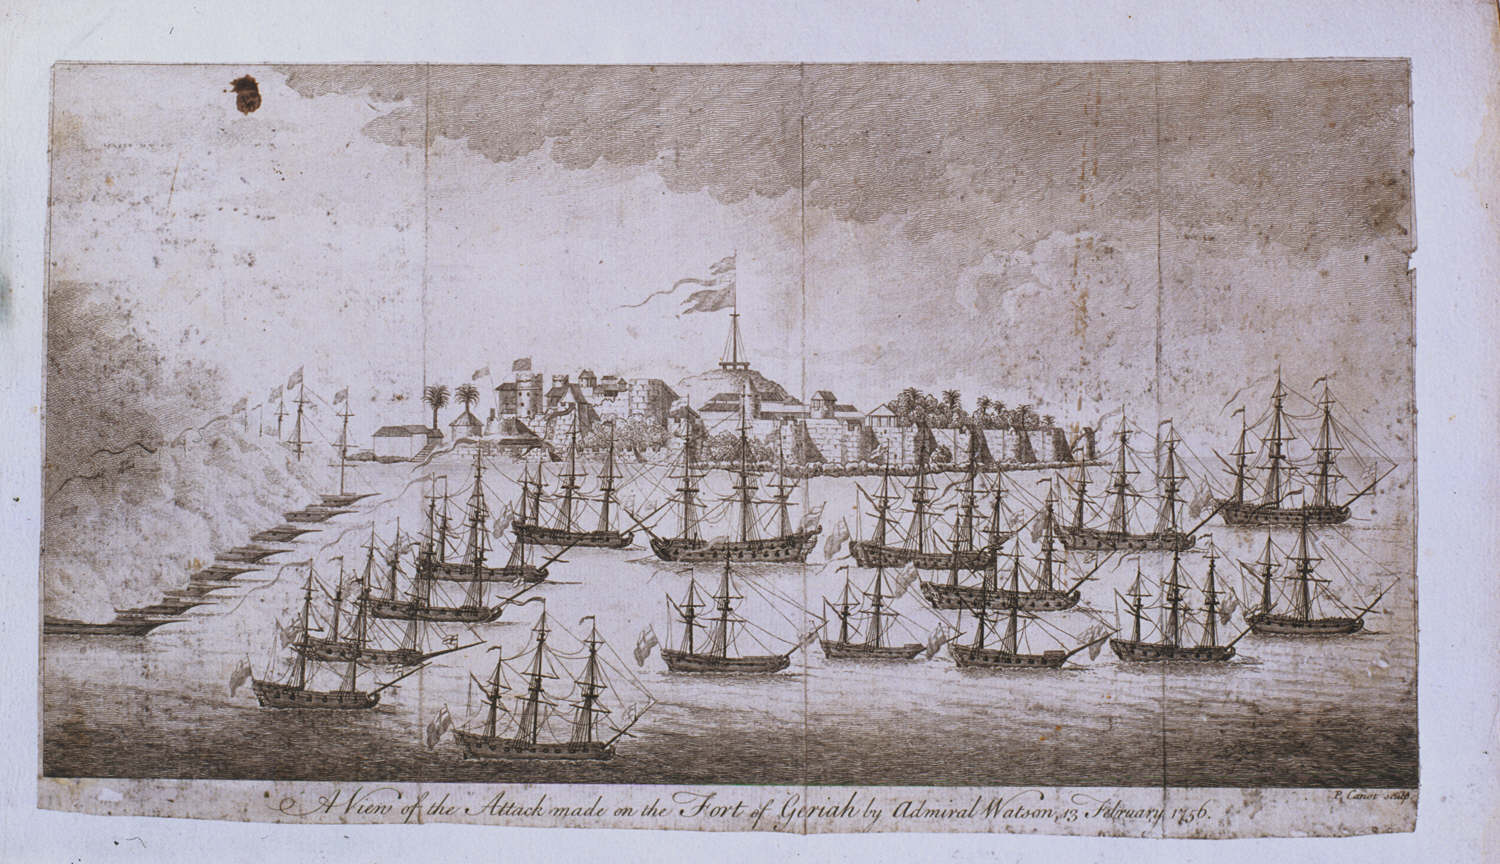 P. Canot sculp.
A View of the Attack made on the Fort of Geriah by Admiral Watson, 13 February 1756.